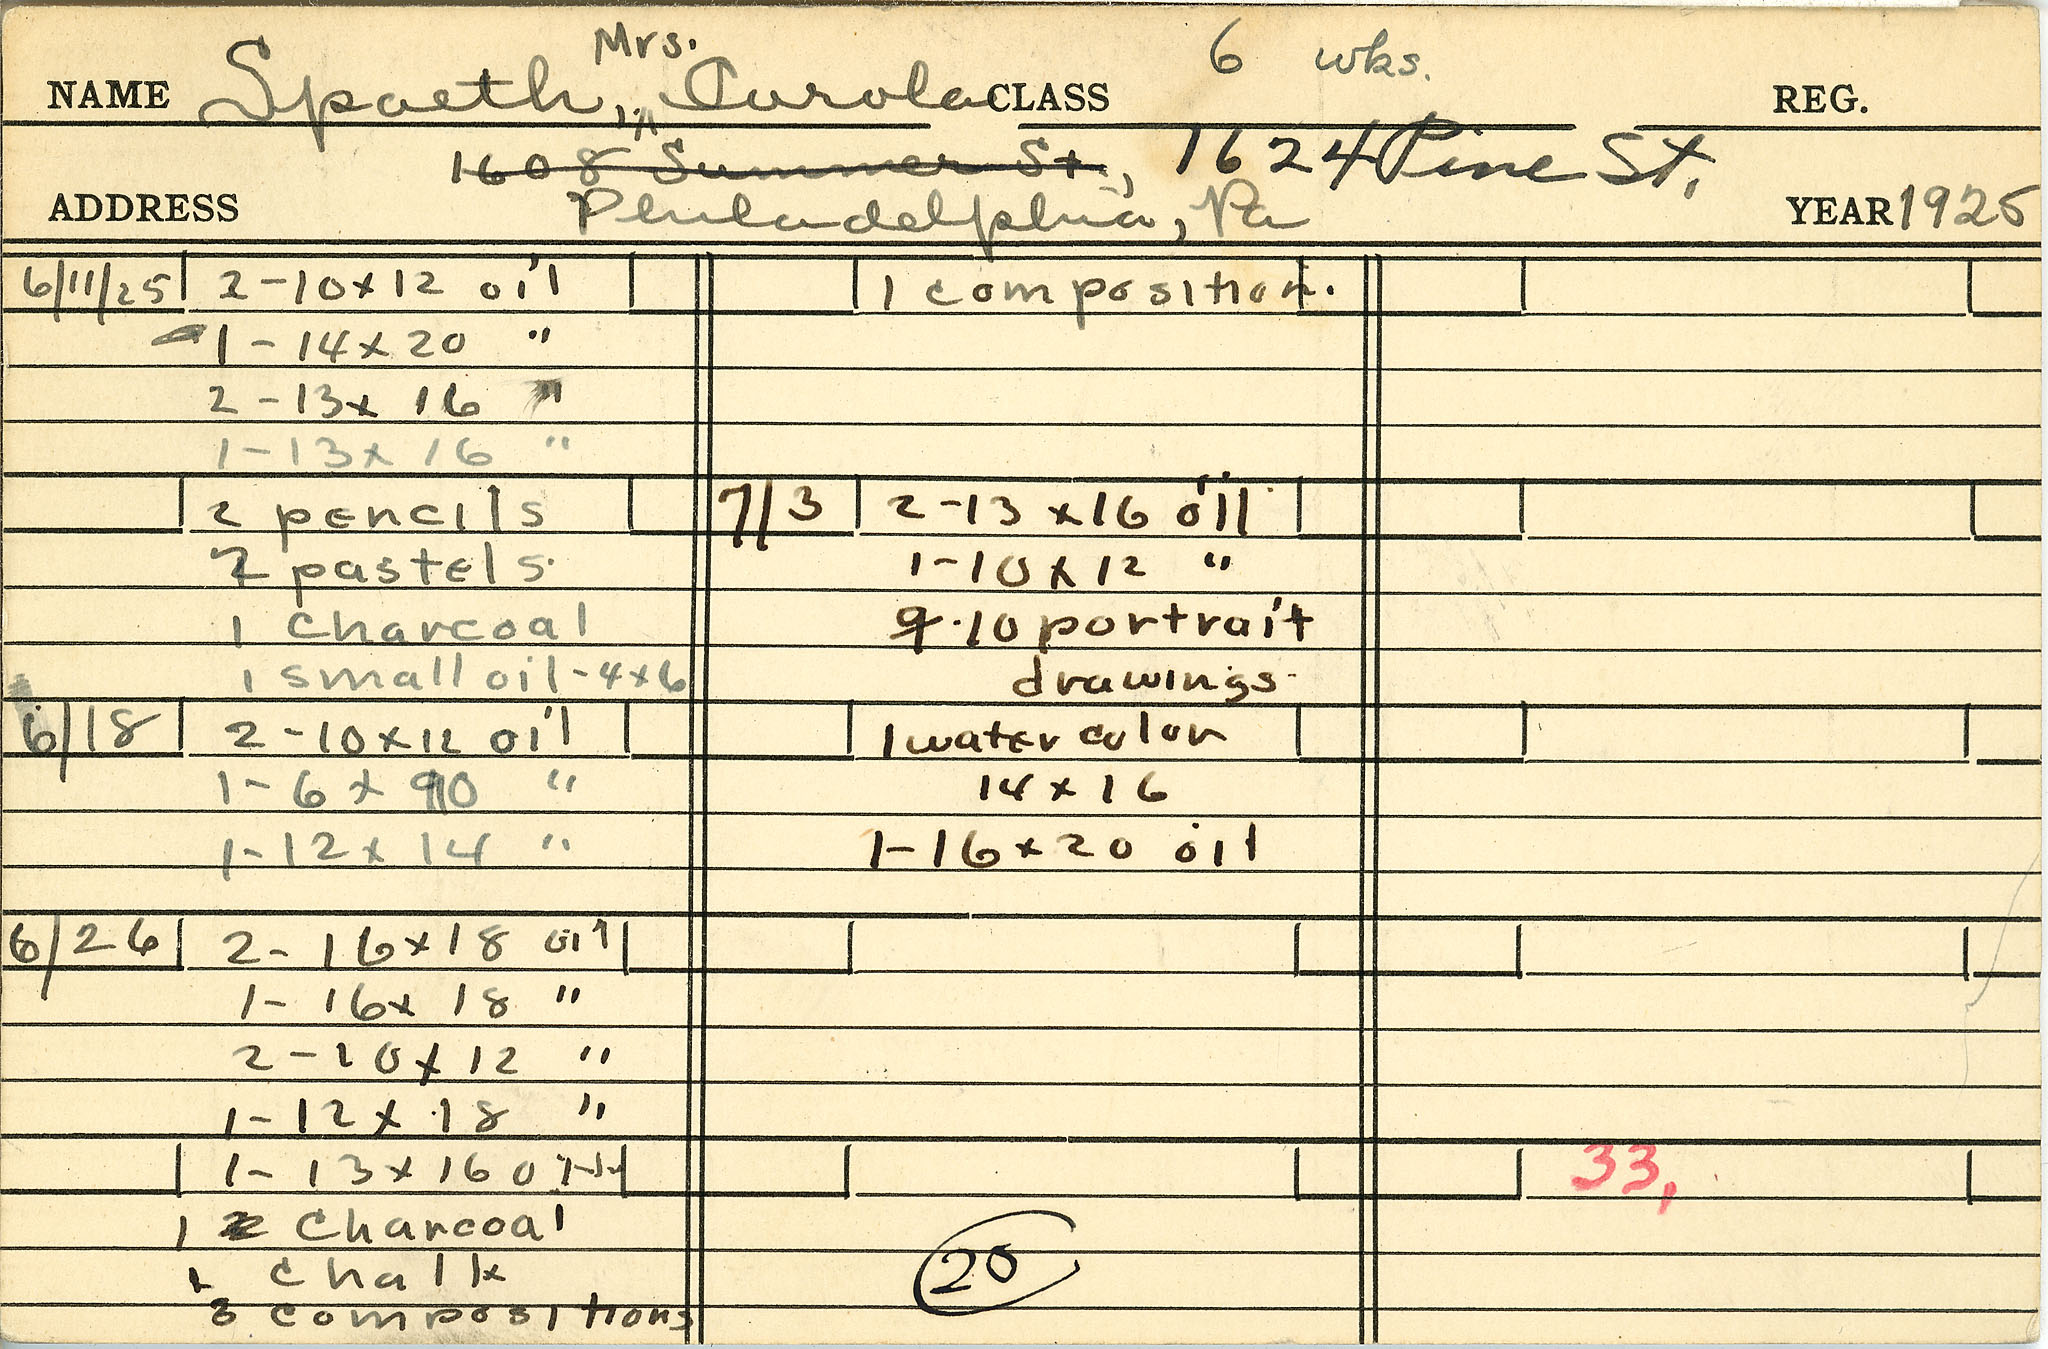 NAME Spaeth, Mrs. Carola CLASS 6 wks. REG.
1608 Summer St., 1624 Pine St.
ADDRESS Philadelphia, Pa YEAR 1925
6/11/25 2-10x12 oil
1-14x20 "
2-13x16 "
1-13x16 "
2 pencils
2 pastels.
1 charcoal
1 small oil-4x6
6/18 2-10x12 oil
1-6x90 "
1-12x14 "
6/26 2-16x18 oil
1-16x18 "
2-10x12 "
1-12x18 "
1-13x16 oil
1 charcoal
1 chalk
3 compositions
1 composition.
7/3 2-13x16 oil
1-10x12 "
9-10 portrait
drawings.
1 water color
14x16
1-16x20 oil
20
33,